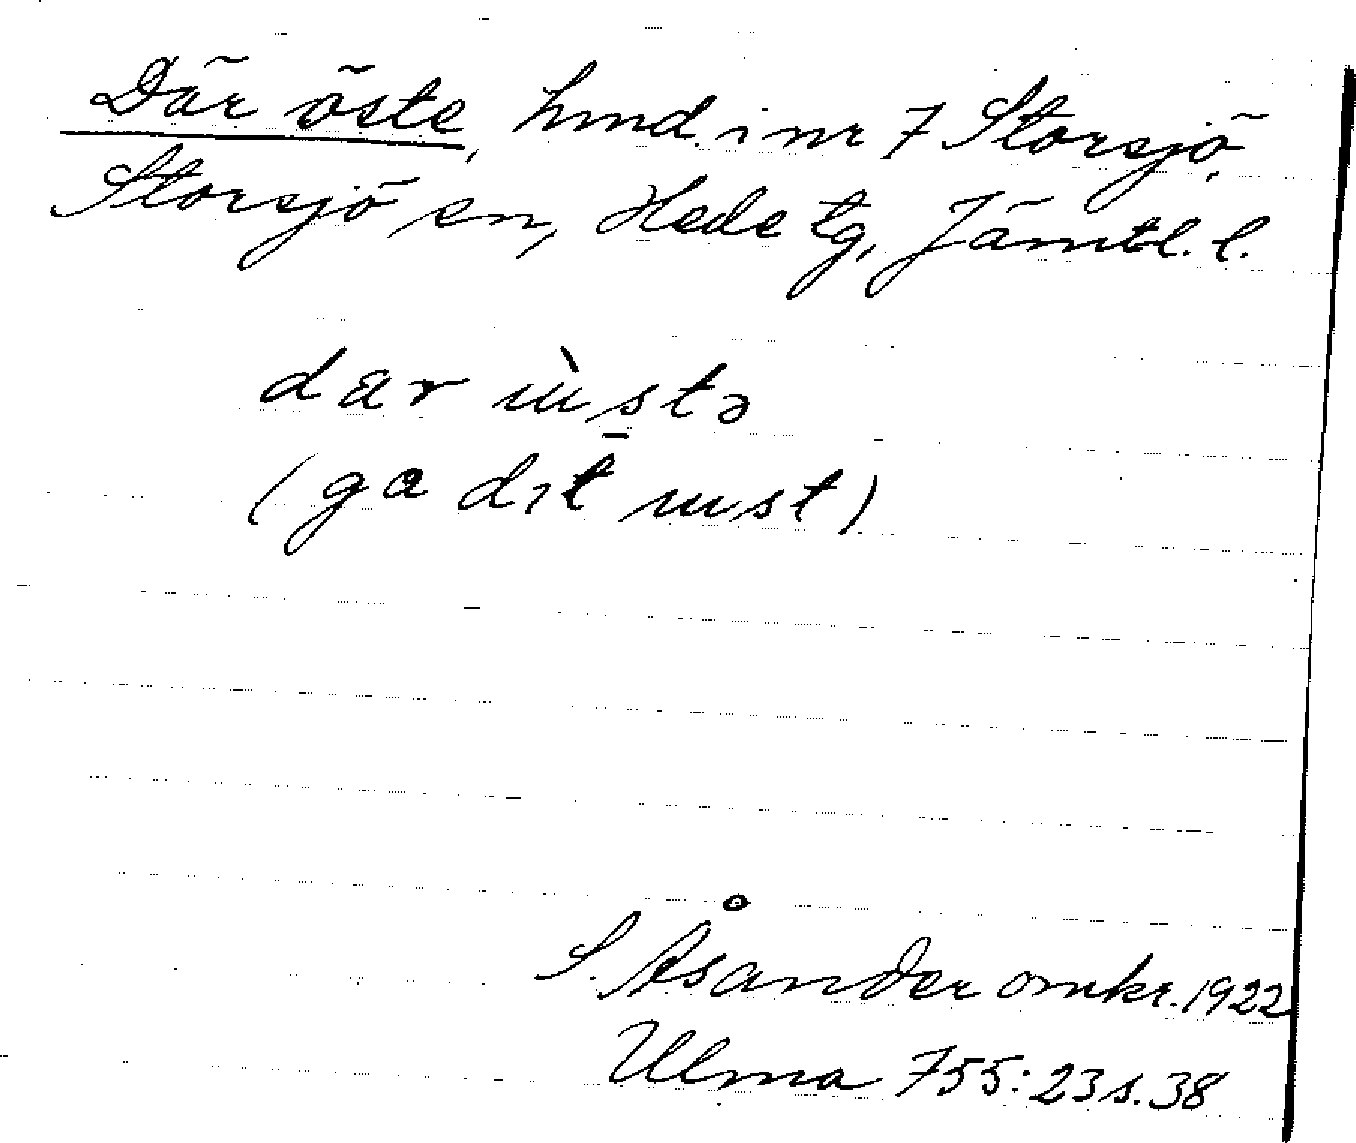 Där öste, hmd. i nr 7 Storsjö,
Storsjö sn, Hede tg, Jämtl. l.
dar ùstə
(ga dıt ust)
S. Åsander omkr. 1922
Ulma 755:23 s. 38